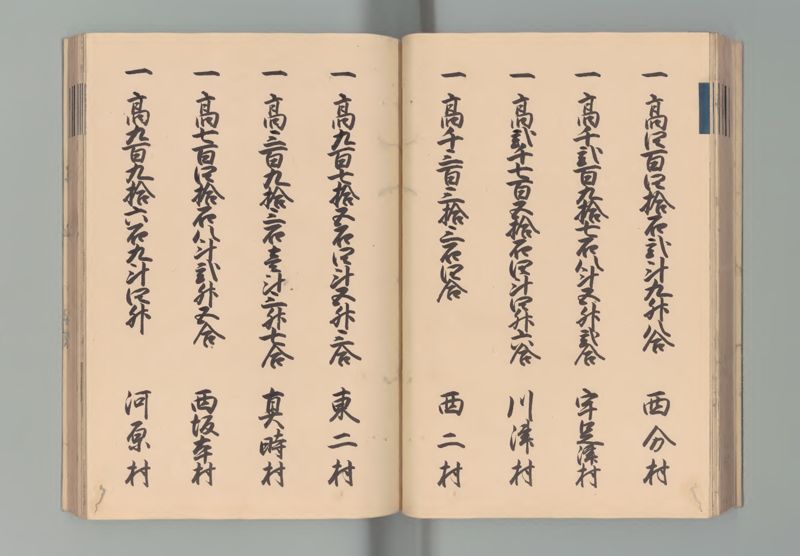 一高四百四拾石弐斗九升八合 西分村
一高千弐百九拾七石八斗五升弐合 宇足津村
一高弐千七百五拾石四斗四升六合 川津村
一高千三百三拾三石四合 西二村
一高九百七拾五石四斗五升三合 東二村
一高三百九拾三石壱斗三升七合 真時村
一高七百四拾石八斗弐升五合 西坂本村
一高九百九拾六石九斗四升 河原村